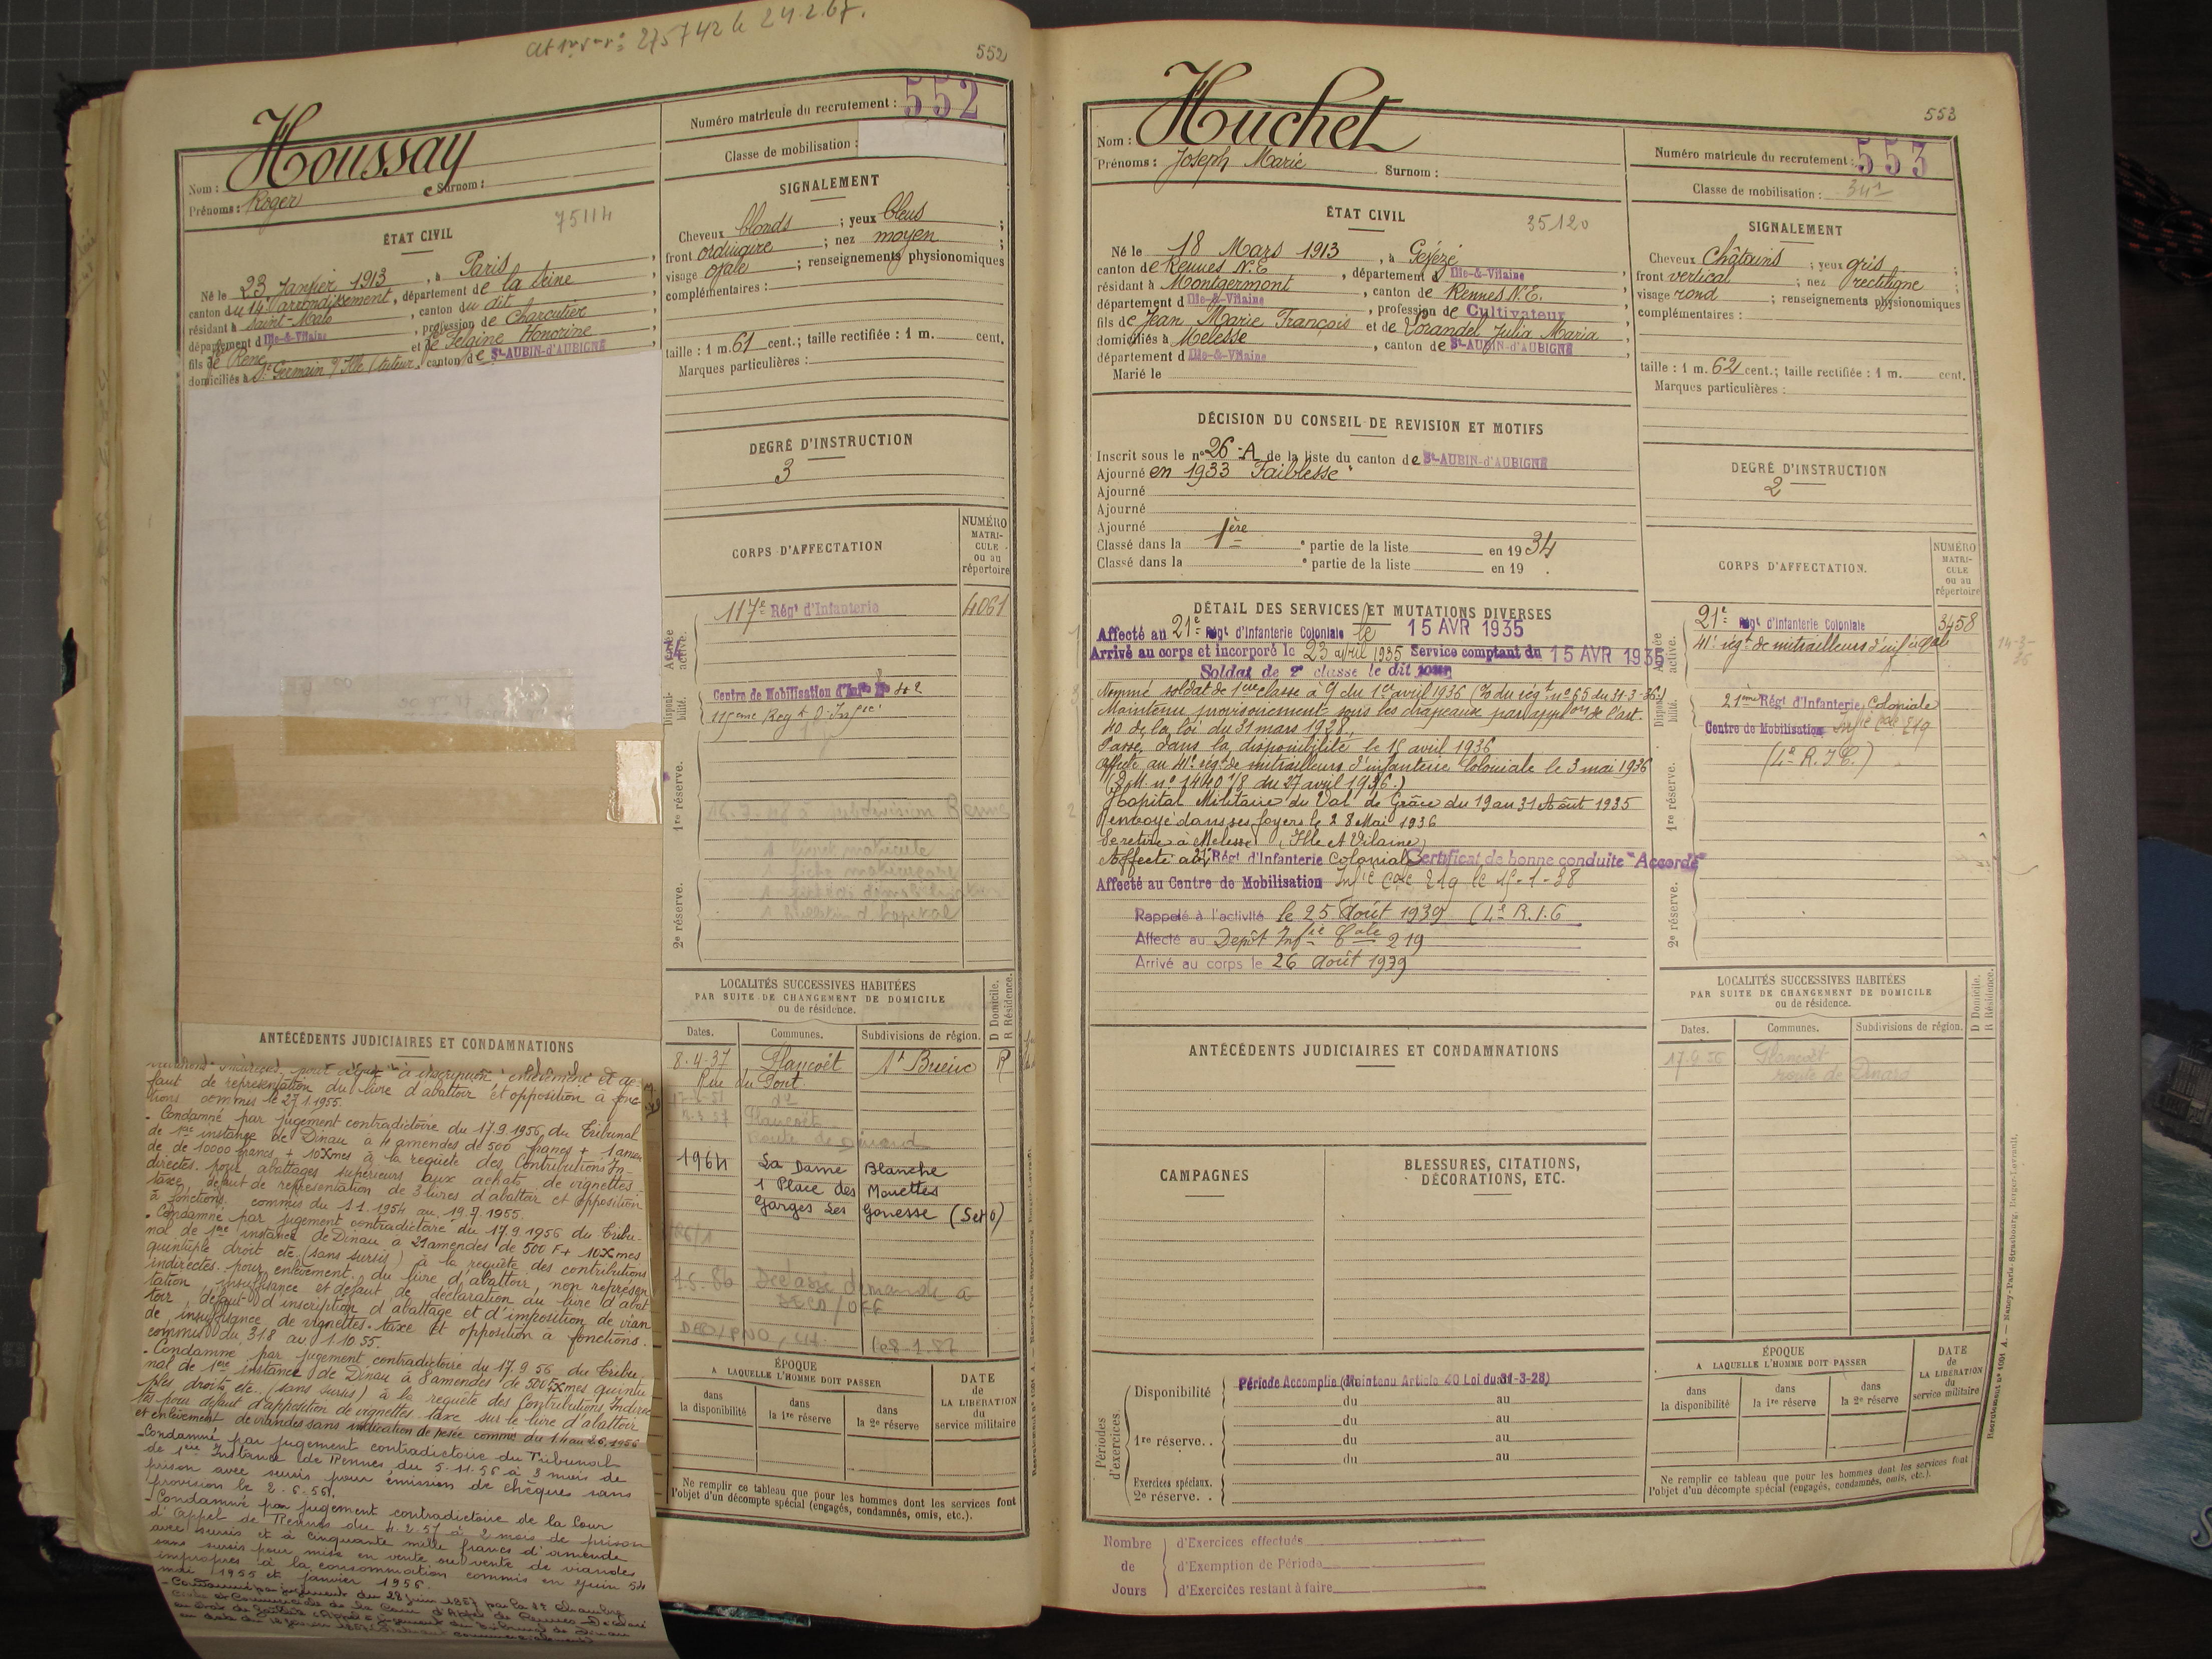 275742 le 24.2.67.
552
Houssay
Nom :
Prénoms : Roger
Surnom :
75114
ÉTAT CIVIL
Né le 23 Janvier 1913, à Paris
canton du 14e arrondissement, département de la Seine
résidant à Saint-Malo, canton du dit
département d Ille-&-Vilaine, profession de Charcutier
fils de René et de Delaine Honorine
domiciliés à St Germain s/ Ille (tuteur), canton de St-AUBIN-d'AUBIGNÉ
ANTÉCÉDENTS JUDICIAIRES ET CONDAMNATIONS
faut de représentation du livre d'abattoir et opposition à fonc-
tions commis le 27.1.1955.
- Condamné par jugement contradictoire du 17.9.1956, du Tribunal
de 1ère instance de Dinan à 4 amendes de 500 francs + 1 amen
de de 10000 francs + 10Xmes à la requête des Contributions In-
directes. pour abattages supérieurs aux achats de vignettes.
taxe, défaut de représentation de 3 livres d'abattoir et opposition
à fonctions, commis du 1.1.1954 au 19.7.1955.
- Condamné par jugement contradictoire du 17.9.1956 du Tribu-
nal de 1ère instance de Dinan à 21 amendes de 500 F + 10Xmes
quintuple droit etc. (sans sursis) à la requête des contributions
indirectes. pour enlèvement du livre d'abattoir, non représen
tation, insuffisance et défaut de déclaration au livre d'abat
toir, défaut d'inscription d'abattage et d'imposition de vian
de, insuffisance de vignettes-taxe et opposition à fonctions.
commis du 31.8 au 1.10.55.
- Condamné par jugement contradictoire du 17.9.56 du Tribu
nal de 1ère instance de Dinan à 8 amendes de 500F Xmes quintu
ples droits etc. (sans sursis) à la requête des Contributions Indirec
tes pour défaut d'apposition de vignettes-taxe sur le livre d'abattoir
et enlèvement de viandes sans indication de pesée commis du 1.4 au 2.6.1956
- Condamné par jugement contradictoire du Tribunal
de 1ère Instance de Rennes, du 5.11.56 à 3 mois de
prison avec sursis pour émission de chèques sans
provision le 2.6.56.
- Condamné par jugement contradictoire de la Cour
d'Appel de Rennes du 4.2.57 à 2 mois de prison
avec sursis et à cinquante mille francs d'amende
sans sursis pour mise en vente ou vente de viandes
impropres à la consommation commis en Juin 54
mai 1955 et janvier 1956.
- Condamné par jugement du 28 juin 1957 par la 1e Chambre
Civile et Commerciale de la Cour d'Appel de Rennes
Numéro matricule du recrutement : 552
Classe de mobilisation :
SIGNALEMENT
Cheveux blonds ; yeux bleus ;
front ordinaire ; nez moyen ;
visage ovale ; renseignements physionomiques
complémentaires :
taille : 1 m. 61 cent.; taille rectifiée : 1 m. cent.
Marques particulières :
DEGRÉ D'INSTRUCTION
3
CORPS D'AFFECTATION
NUMÉRO MATRI-CULE ou au répertoire
Armée active.
117e Régt d'Infanterie 4061
Disponi-bilité.
Centre de Mobilisation d'Infie No 402
115ème Regt d'Infie
1re réserve.
1 livret matricule
1 fiche matricule
2e réserve.
LOCALITÉS SUCCESSIVES HABITÉES
PAR SUITE DE CHANGEMENT DE DOMICILE
ou de résidence.
D Domicile. R Résidence.
Dates. Communes. Subdivisions de région.
8.4.37 Plancoët St Brieuc R
Rue du Pont
do
Plancoët
Route de Dinard
1964 La Dame Blanche
1 Place des Mouettes
Garges Les Gonesse (S et O)
1.5.86 Declassé demande à
1e 8.1.87
ÉPOQUE
A LAQUELLE L'HOMME DOIT PASSER
DATE de LA LIBÉRATION du service militaire
dans la disponibilité
dans la 1re réserve
dans la 2e réserve
Ne remplir ce tableau que pour les hommes dont les services font
l'objet d'un décompte spécial (engagés, condamnés, omis, etc.).
553
Huchet
Nom :
Prénoms : Joseph Marie Surnom :
ÉTAT CIVIL
35120
Né le 18 Mars 1913, à Gévezé
canton de Rennes N.E, département d Ille-&-Vilaine
résidant à Montgermont, canton de Rennes N.E.
département d Ille-&-Vilaine, profession de Cultivateur
fils de Jean Marie François et de Lorandel Julia Maria
domiciliés à Melesse, canton de St-AUBIN-d'AUBIGNÉ
département d Ille-&-Vilaine
Marié le
DÉCISION DU CONSEIL DE REVISION ET MOTIFS
Inscrit sous le no 26-A de la liste du canton de St-AUBIN-d'AUBIGNÉ
Ajourné en 1933 Faiblesse
Ajourné
Ajourné
Ajourné
Classé dans la 1ère e partie de la liste en 1934
Classé dans la e partie de la liste en 19 .
DÉTAIL DES SERVICES ET MUTATIONS DIVERSES
Affecté au 21e Régt d'Infanterie Coloniale le 15 AVR 1935
Arrivé au corps et incorporé le 23 avril 1935 Service comptant du 15 AVR 1935
Soldat de 2e classe le dit jour
Nommé soldat de 1ère classe à C/ du 1er avril 1936 (% du régt no 65 du 31-3-36.)
Maintenu provisoirement sous les drapeaux par appon de l'art.
40 de la loi du 31 mars 1928.
Passé dans la disponibilité le 15 avril 1936
Affecté au 41e régt de mitrailleurs d'infanterie Coloniale le 3 mai 1936
(D.M. no 1440 1/8 du 27 avril 1936.)
Hôpital Militaire du Val de Grâce du 19 au 31 Août 1935
Renvoyé dans ses foyers le 28 Mai 1936
Se retire à Melesse (Ille et Vilaine)
Affecté au 21e Régt d'Infanterie Coloniale Certificat de bonne conduite "Accordé"
Affecté au Centre de Mobilisation Infie Cale 219 le 15-1-38
Rappelé à l'activité le 25 Août 1939 (4e R.I.C
Affecté au Depôt Infie Cale 219
Arrivé au corps le 26 Août 1939
ANTÉCÉDENTS JUDICIAIRES ET CONDAMNATIONS
CAMPAGNES
BLESSURES, CITATIONS, DÉCORATIONS, ETC.
Périodes d'exercices.
Disponibilité Période Accomplie (Maintenu Article 40 Loi du 31-3-28)
du au
1re réserve. . du au
du au
Exercices spéciaux.
2e réserve. .
Nombre de Jours
d'Exercices effectués
d'Exemption de Période
d'Exercices restant à faire
Numéro matricule du recrutement : 553
Classe de mobilisation : 34
SIGNALEMENT
Cheveux Châtains ; yeux gris ;
front vertical ; nez rectiligne ;
visage rond ; renseignements physionomiques
complémentaires :
taille : 1 m. 62 cent.; taille rectifiée : 1 m. cent.
Marques particulières :
DEGRÉ D'INSTRUCTION
2
CORPS D'AFFECTATION.
NUMÉRO MATRI-CULE ou au répertoire
Armée active.
21e Régt d'Infanterie Coloniale 3458
41e régt de mitrailleurs d'inf. cole
Disponi-bilité.
21ème Régt d'Infanterie Coloniale
Centre de Mobilisation Infie Cale 219
(4e R.I.C.)
1re réserve.
2e réserve.
LOCALITÉS SUCCESSIVES HABITÉES
PAR SUITE DE CHANGEMENT DE DOMICILE
ou de résidence.
D Domicile. R Résidence.
Dates. Communes. Subdivisions de région.
17.9.56 Plancoët
route de Dinard
ÉPOQUE
A LAQUELLE L'HOMME DOIT PASSER
DATE de LA LIBÉRATION du service militaire
dans la disponibilité
dans la 1re réserve
dans la 2e réserve
Ne remplir ce tableau que pour les hommes dont les services font
l'objet d'un décompte spécial (engagés, condamnés, omis, etc.).
Recrutement no 1091 A. — Nancy-Paris-Strasbourg, Berger-Levrault.